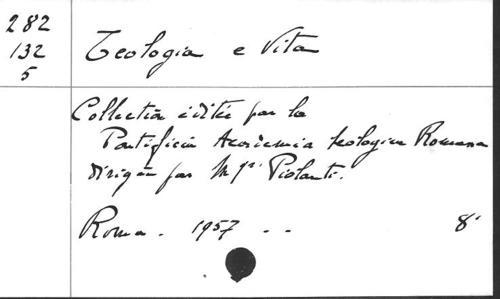 282
132
5
Teologia e Vita
Collection éditée par la
Pontificia Accademia teologica Romana
dirigée par Mgr Piolanti.
Roma. 1957 .. 8°